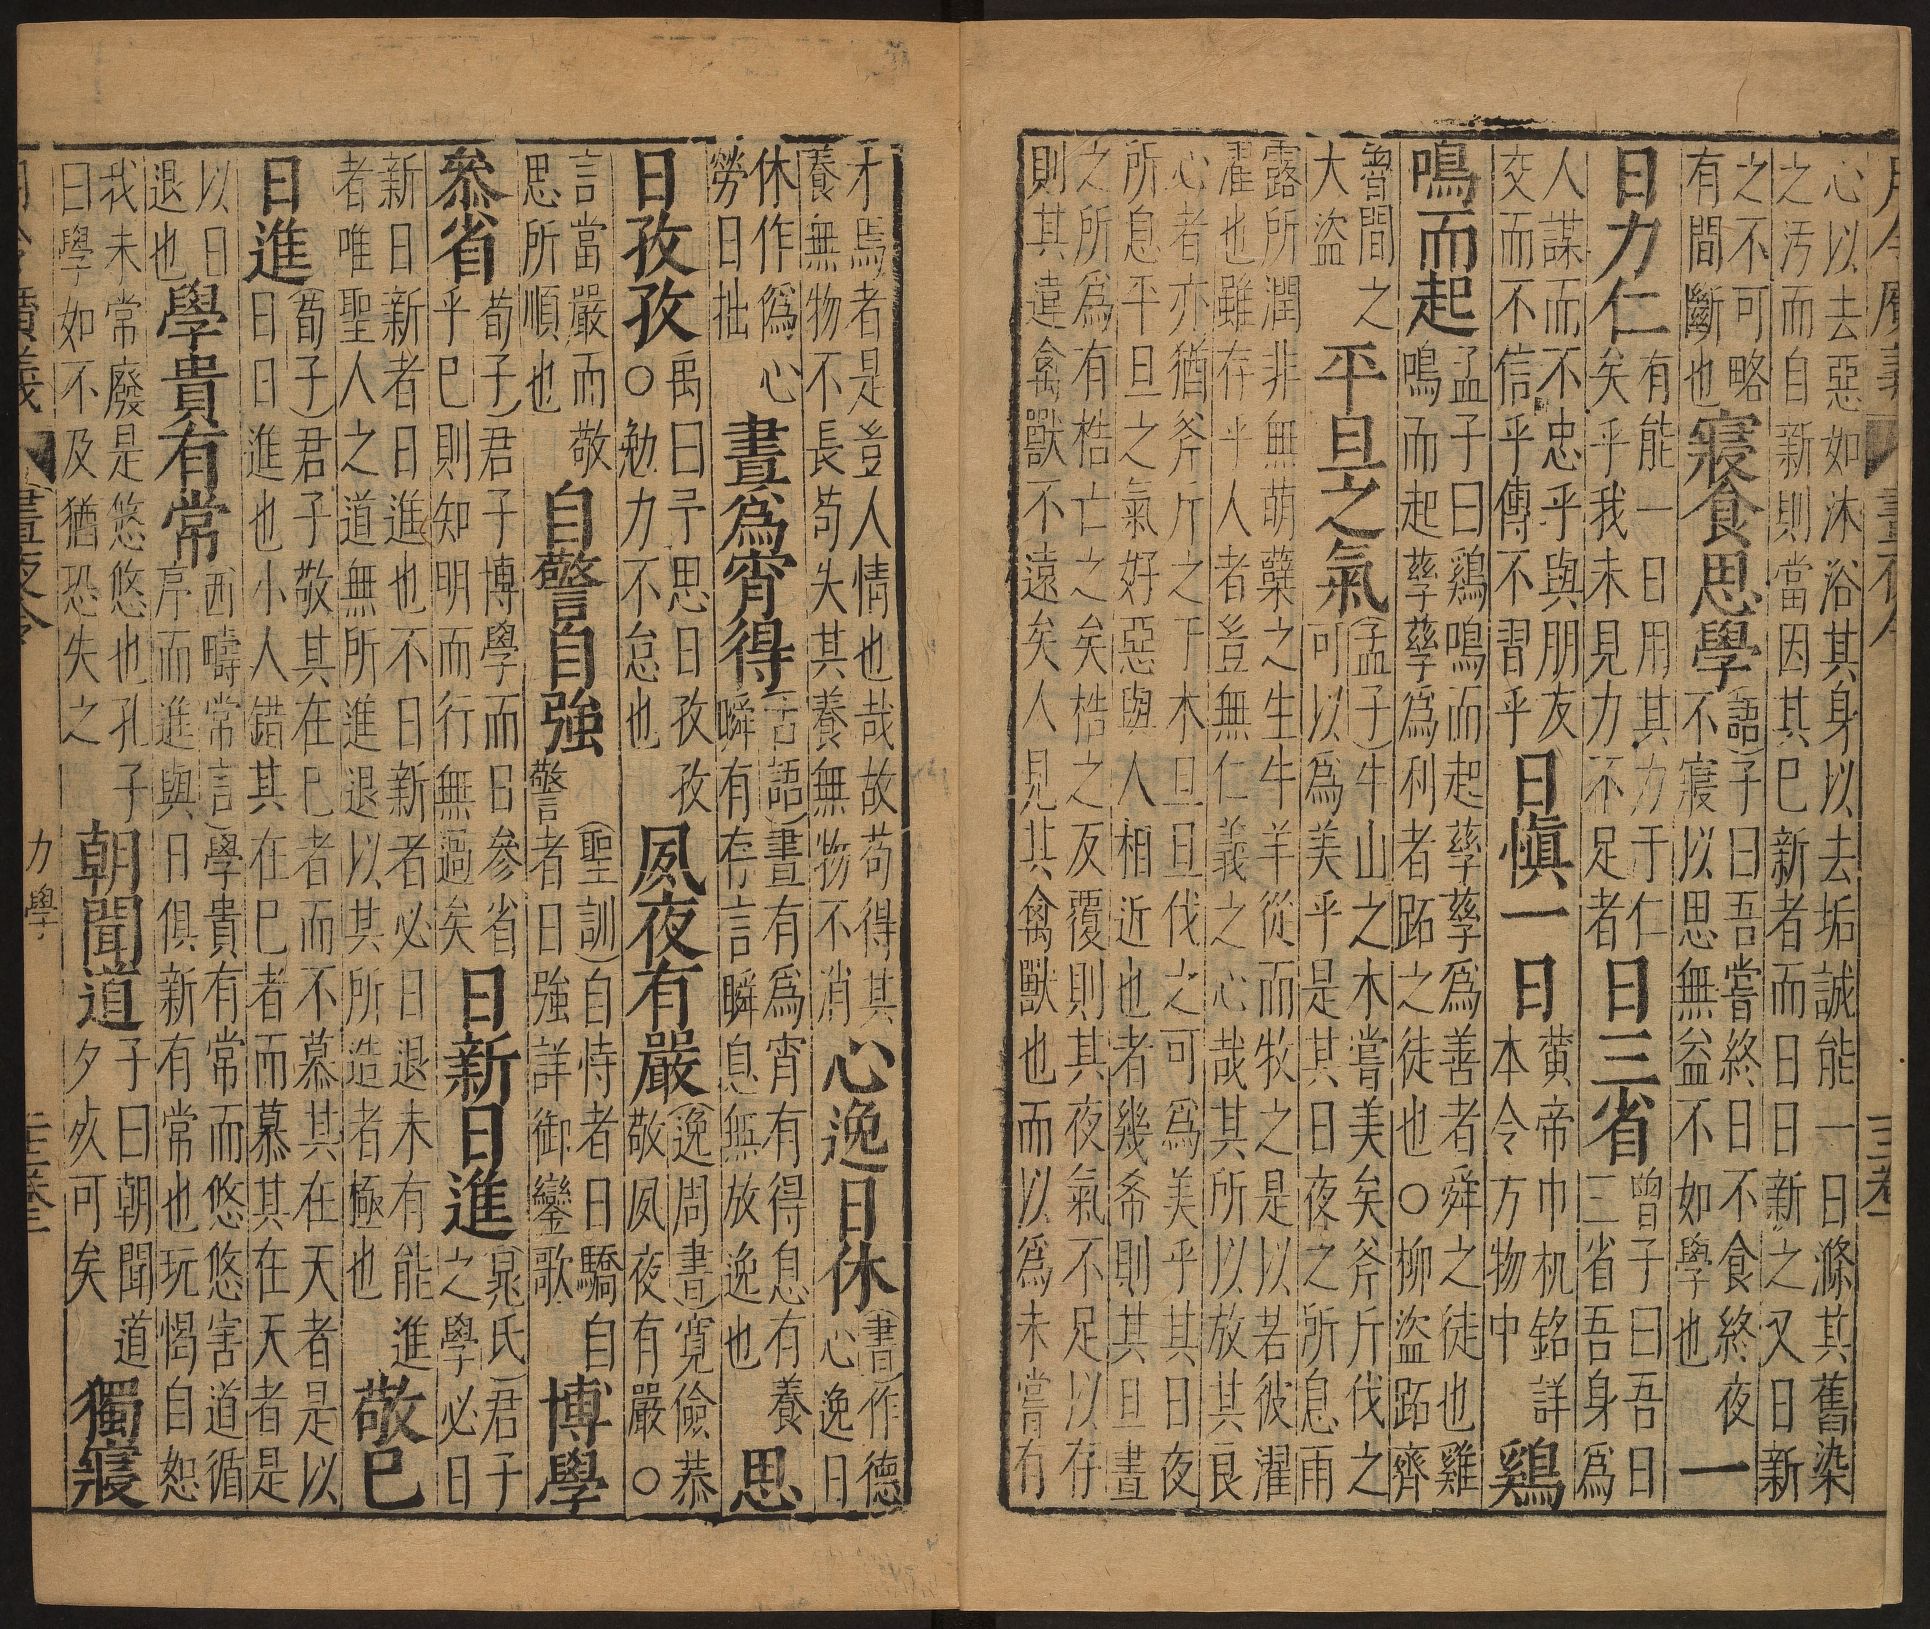 心以去惡如沐浴其身以去垢誠能一日滌其舊染
之汚而自新則當因其已新者而日日新之又日新
之不可略
有間斷也
寢食思學
(語)子曰吾嘗終日不食終夜
不寢以思無益不如學也
一
日力仁
有能一日用其力于仁
矣乎我未見力不足者
日三省
曾子曰吾日
三省吾身爲
人謀而不忠乎與朋友
交而不信乎傳不習乎
日慎一日
黄帝巾杌銘詳
本令方物中
鷄
鳴而起
孟子曰鷄鳴而起孳孳爲善者舜之徒也雞
鳴而起孳孳爲利者跖之徒也○柳盜跖齊
魯間之
大盜
平旦之氣
(孟子)牛山之木嘗美矣斧斤伐之
可以爲美乎是其日夜之所息雨
露所潤非無萌蘖之生牛羊從而牧之是以若彼濯
濯也雖存乎人者豈無仁義之心哉其所以放其良
心者亦猶斧斤之于木旦旦伐之可爲美乎其日夜
所息平旦之氣好惡與人相近也者幾希則其旦晝
之所爲有梏亡之矣梏之反覆則其夜氣不足以存
則其違禽獸不遠矣人見其禽獸也而以爲未嘗有
才焉者是豈人情也哉故苟得其
養無物不長苟失其養無物不消
心逸日休
(書)作德
心逸日
休作僞心
勞日拙
晝爲宵得
(古語)晝有爲宵有得息有養
瞬有存言瞬息無放逸也
思
日孜孜
禹曰予思日孜孜
○勉力不怠也
夙夜有嚴
(逸周書)寛儉恭
敬夙夜有嚴○
言當嚴而敬
思所順也
自警自強
(聖訓)自恃者日驕自
警者日強詳御鑾歌
博學
叅省
(荀子)君子博學而日參省
乎已則知明而行無過矣
日新日進
(晁氏)君子
之學必日
新日新者日進也不日新者必日退未有能進
者唯聖人之道無所進退以其所造者極也
敬已
日進
(荀子)君子敬其在已者而不慕其在天者是以
日日進也小人錯其在已者而慕其在天者是
以日
退也
學貴有常
(西疇常言)學貴有常而悠悠害道循
序而進與日俱新有常也玩愒自恕
我未常廢是悠悠也孔子
曰學如不及猶恐失之
朝聞道
子曰朝聞道
夕死可矣
獨寢
力學